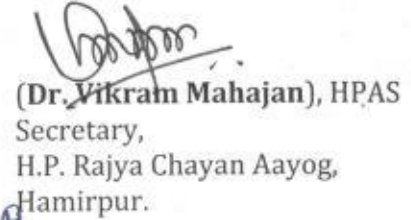 (Dr. Vikram Mahajan), HPAS
Secretary,
H.P. Rajya Chayan Aayog,
Hamirpur.